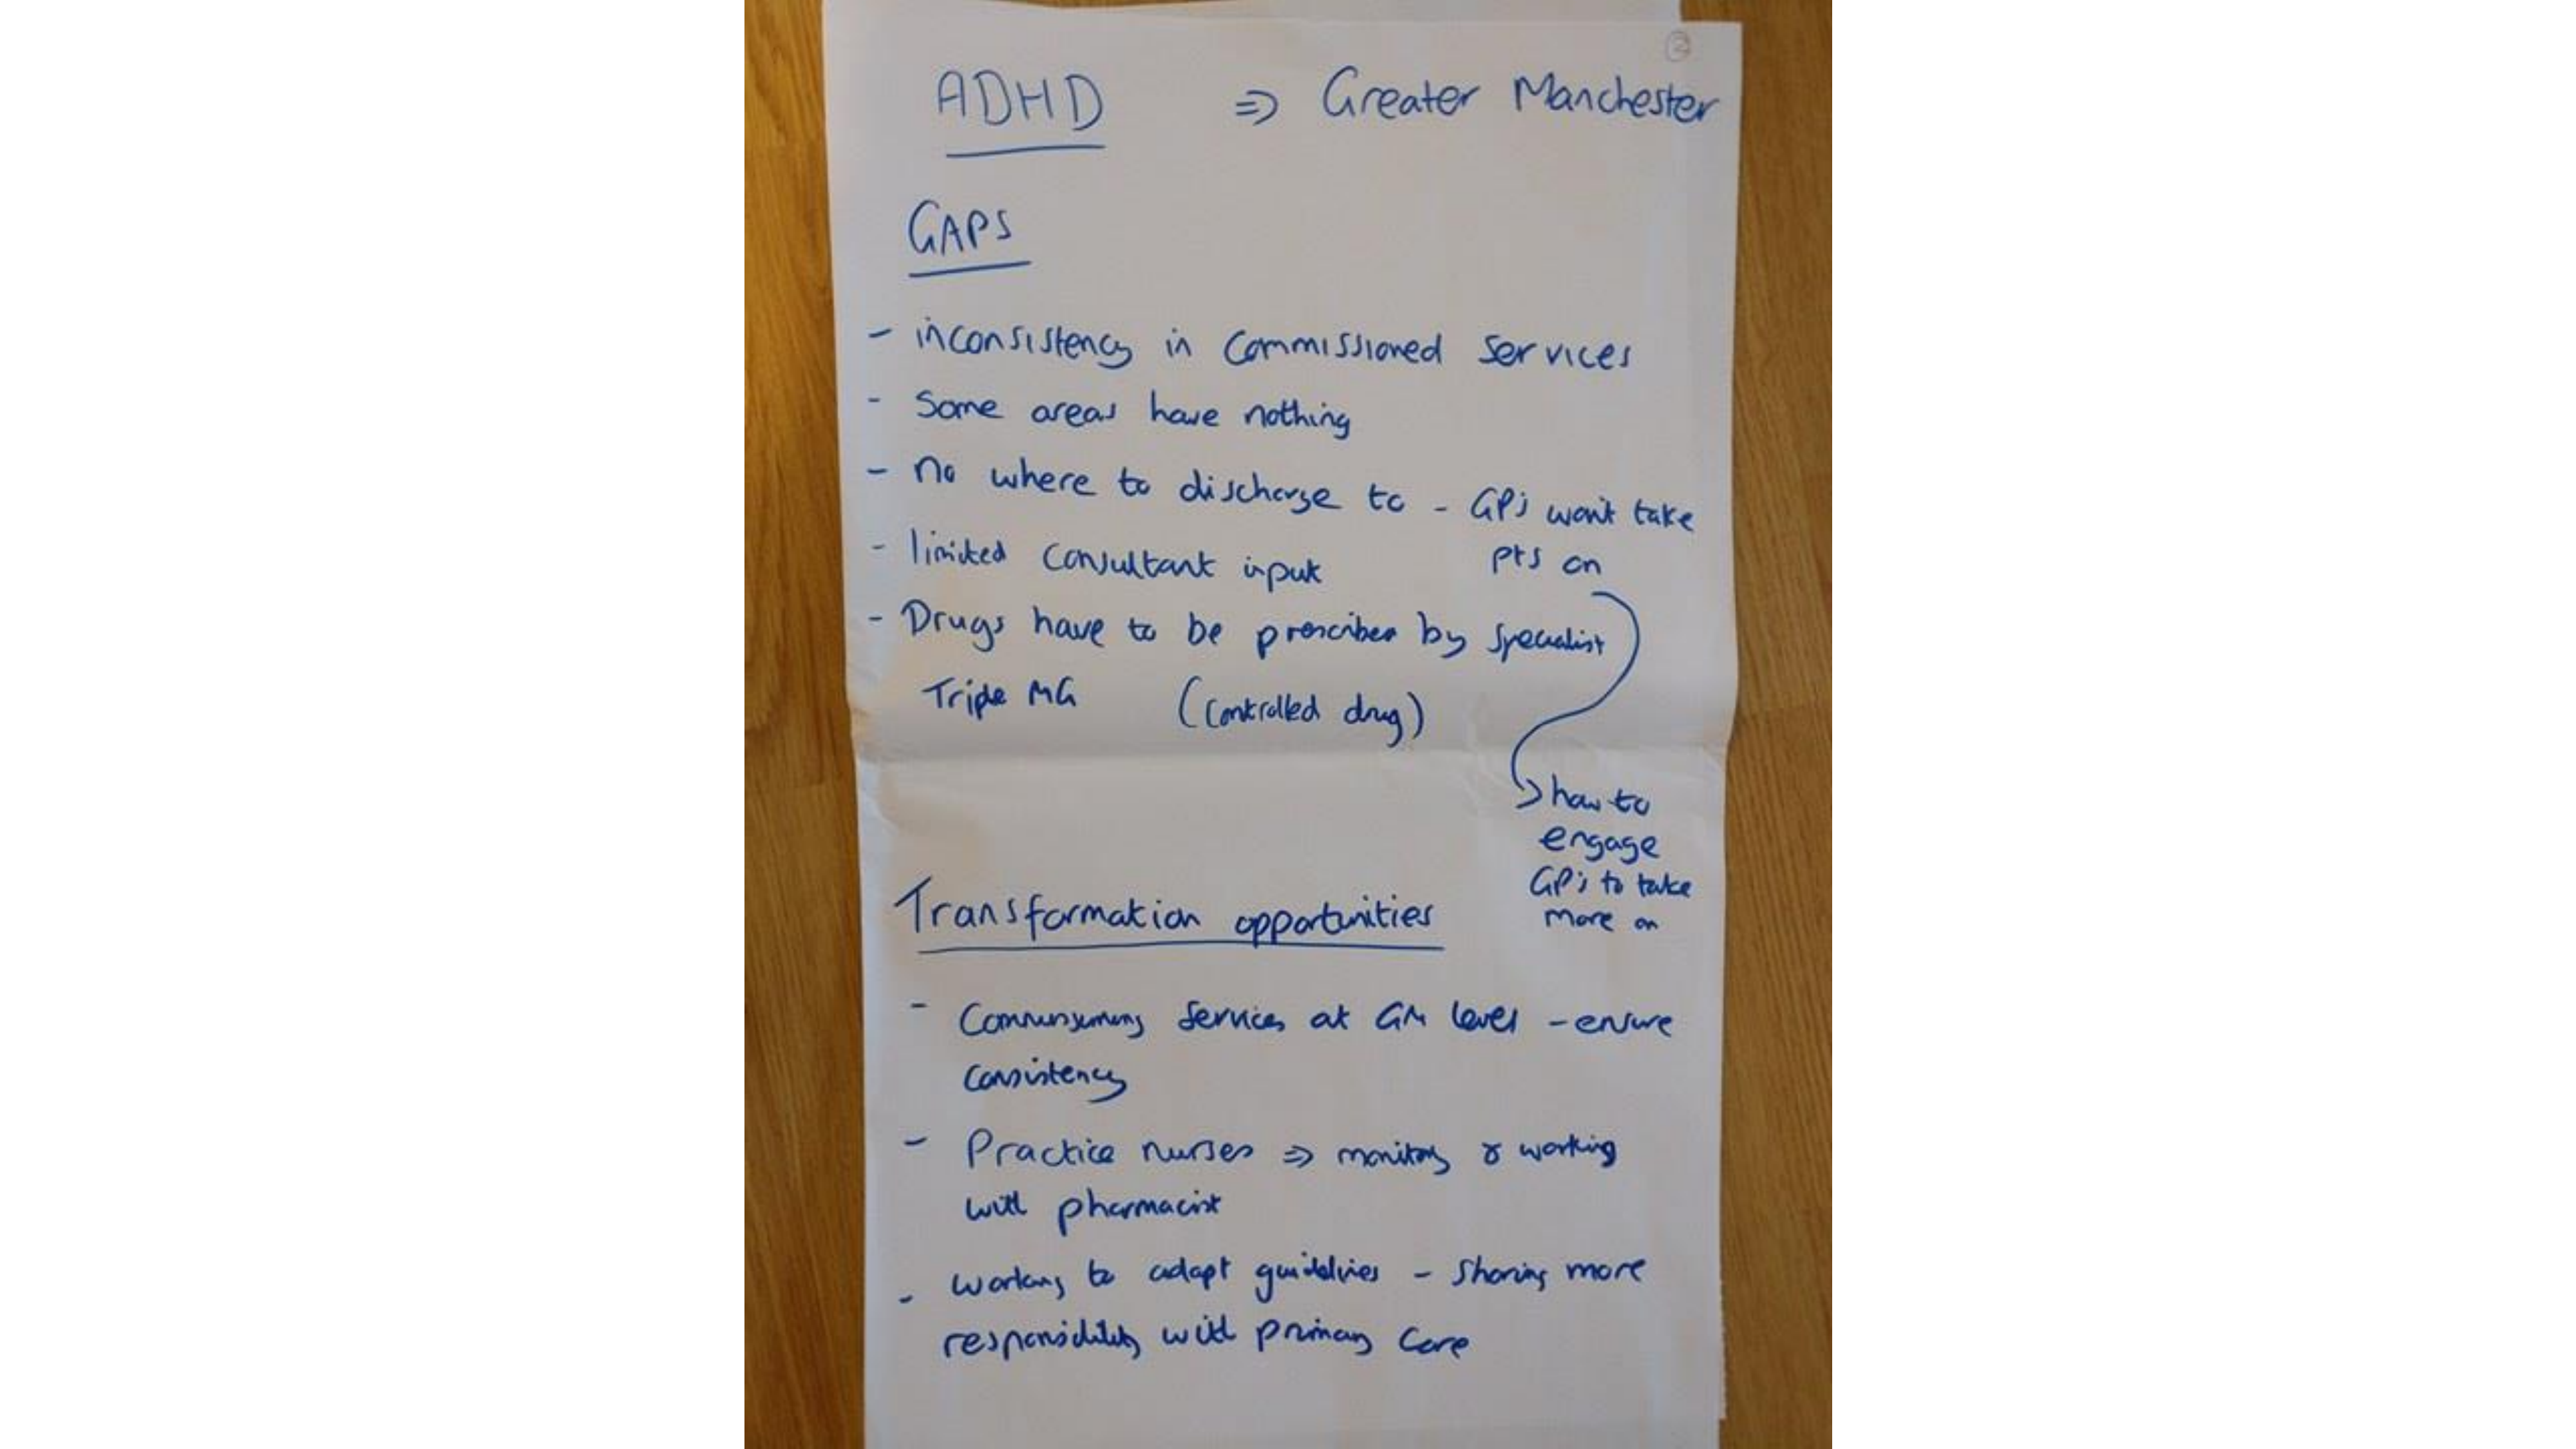 ②
ADHD ⇒ Greater Manchester
GAPS
- inconsistency in commissioned services
- Some areas have nothing
- no where to discharge to - GP's won't take
pts on
- limited consultant input
- Drugs have to be prescriber by specialist
Triple MG (controlled drug)
how to
engage
GP's to take
more on
Transformation opportunities
- Commissioning services at GM level - ensure
consistency
- Practice nurses ⇒ monitoring & working
with pharmacist
- working to adapt guidelines - sharing more
responsibility with primary care